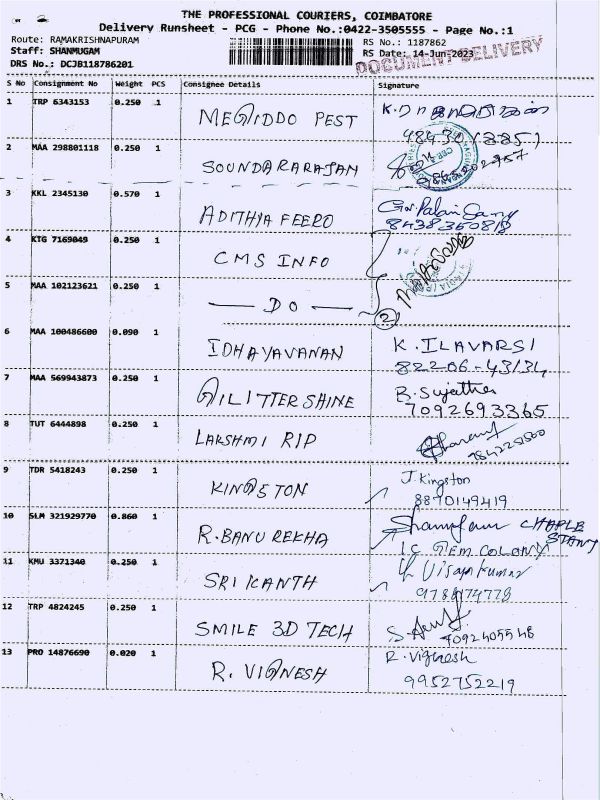 THE PROFESSIONAL COURIERS, COIMBATORE
Delivery Runsheet - PCG - Phone No.:0422-3505555 - Page No.:1
Route: RAMAKRISHNAPURAM
Staff: SHANMUGAM
DRS No.: DCJB118786201
RS No.: 1187862
RS Date: 14-Jun-2023
DOCUMENT DELIVERY
S No Consignment No Weight PCS Consignee Details Signature
1 TRP 6343153 0.250 1 MEGIDDO PEST
2 MAA 298801118 0.250 1 SOUNDARARAJAN
3 KKL 2345130 0.570 1 ADITHYA FEERO
4 KTG 7169049 0.250 1 CMS INFO
5 MAA 102123621 0.250 1 — DO —
2
6 MAA 100486600 0.090 1 IDHAYAVANAN K. ILAVARSI
82206-43134
7 MAA 569943873 0.250 1 GILITTER SHINE B. Sujatha
7092693365
8 TUT 6444898 0.250 1 LAKSHMI RIP
9 TDR 5418243 0.250 1 KINGSTON J. Kingston
8870149419
10 SLM 321929770 0.860 1 R. BANU REKHA CHAPLE
GEM COLONY
11 KMU 3371340 0.250 1 SRIKANTH Vijaya Kumar
12 TRP 4824245 0.250 1 SMILE 3D TECH
7092405548
13 PRO 14876690 0.020 1 R. VIGNESH R. Vignesh
9952752219